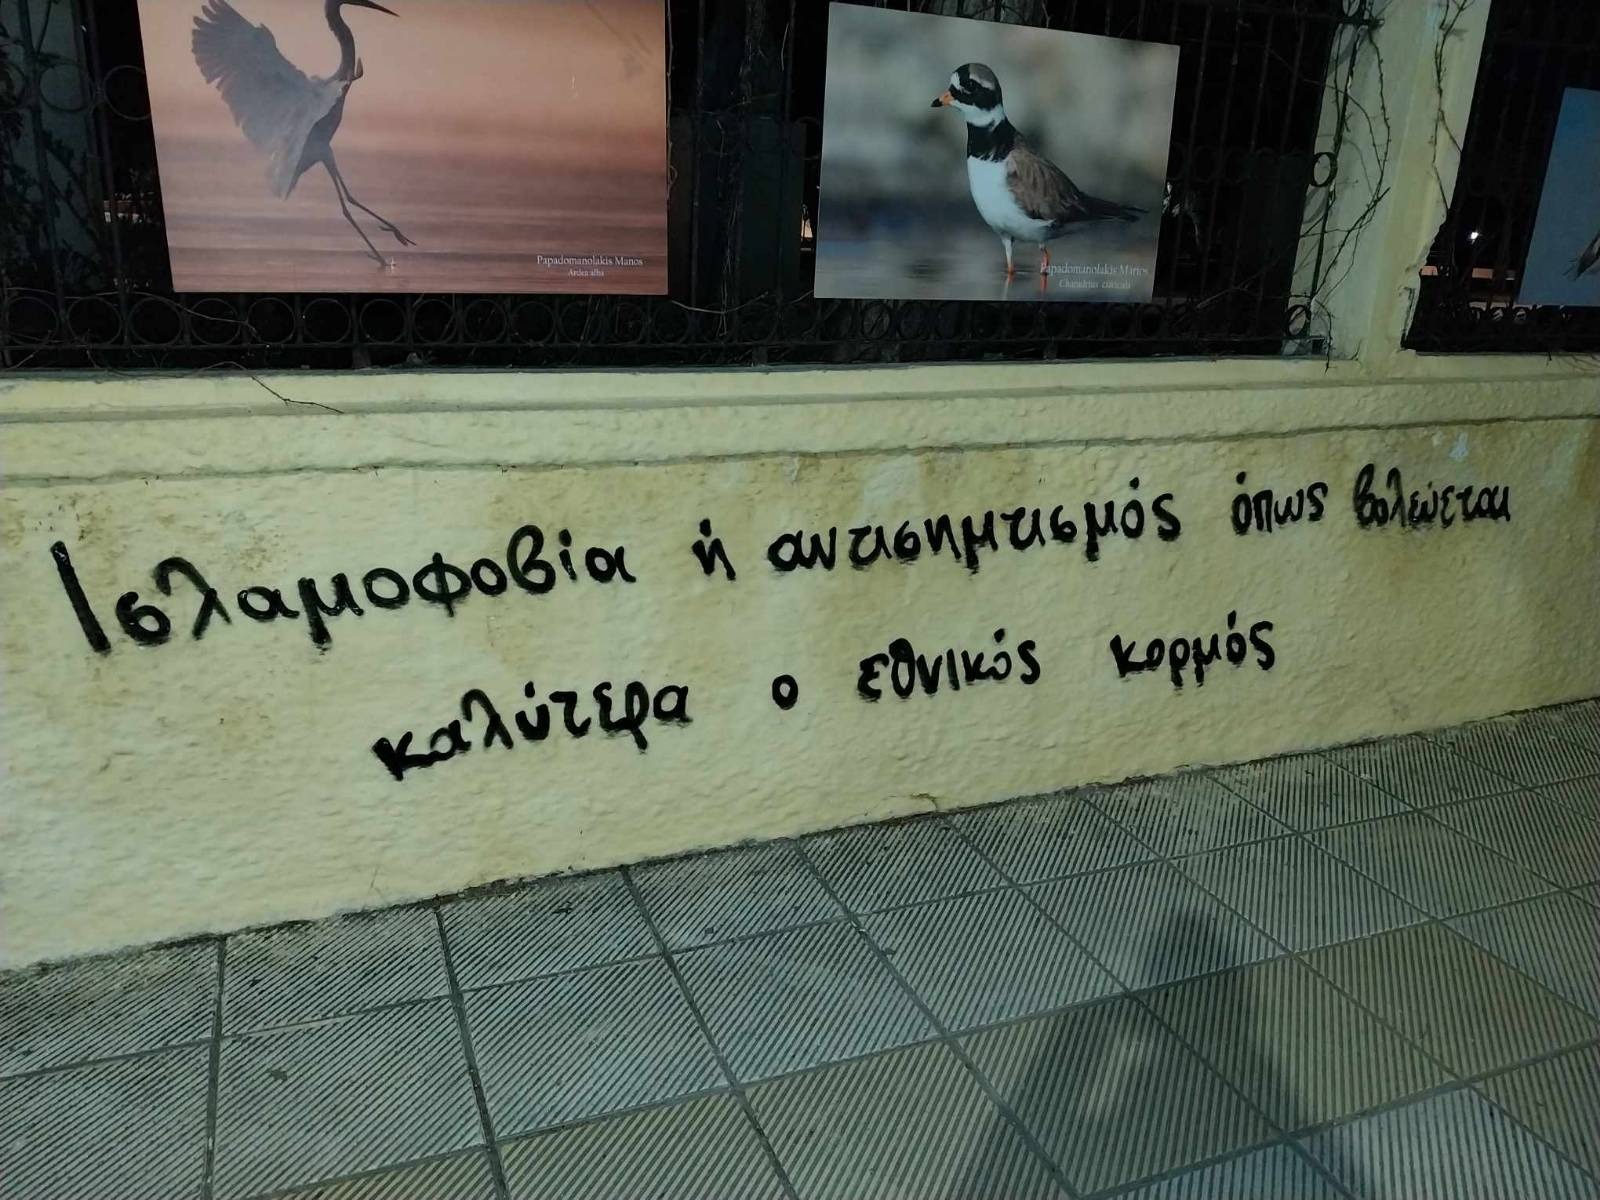 Papadomanolakis Manos
Ardea alba
Papadomanolakis Manos
Ισλαμοφοβία ή αντισημτισμός όπως βολεύεται
καλύτερα ο εθνικός κορμός